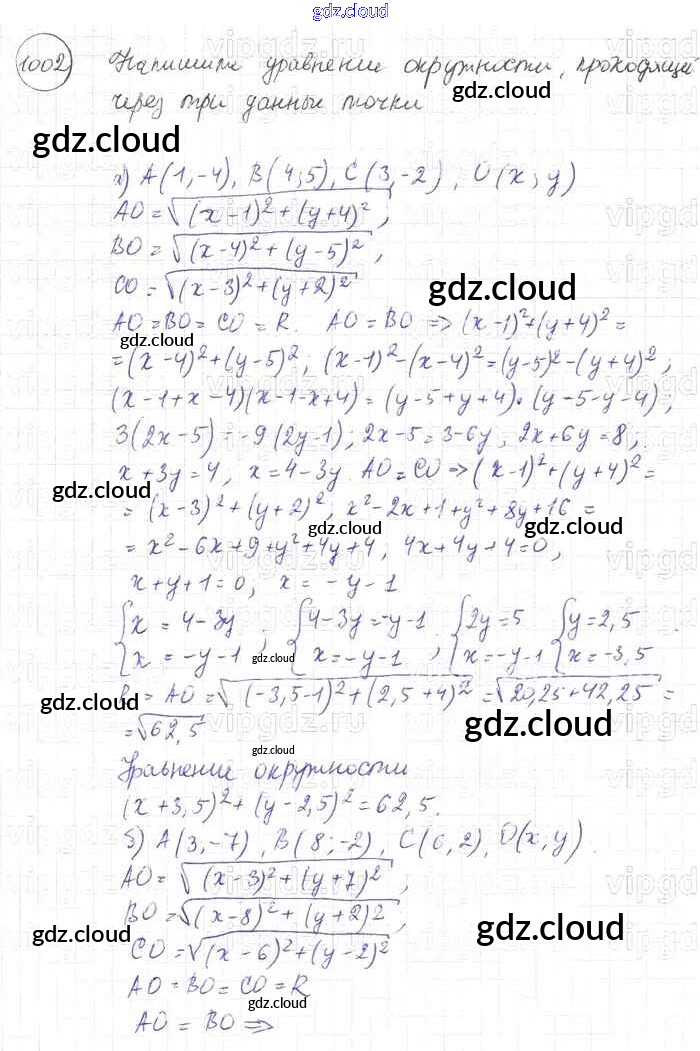 gdz.cloud
1002) Напишите уравнение окружности, проходящей
через три данные точки
gdz.cloud
gdz.cloud
а) A(1,-4), B(4;5), C(3,-2), O(x;y)
AO=√(x-1)²+(y+4)²,
BO=√(x-4)²+(y-5)²,
CO=√(x-3)²+(y+2)²
gdz.cloud
AO=BO=CO=R. AO=BO ⇒(x-1)²+(y+4)²=
gdz.cloud
=(x-4)²+(y-5)²; (x-1)²-(x-4)²=(y-5)²-(y+4)²;
(x-1+x-4)(x-1-x+4)=(y-5+y+4)·(y-5-y-4);
3(2x-5)=-9(2y-1); 2x-5=3-6y; 2x+6y=8;
x+3y=4, x=4-3y. AO=CO⇒(x-1)²+(y+4)²=
gdz.cloud
=(x-3)²+(y+2)², x²-2x+1+y²+8y+16=
gdz.cloud
gdz.cloud
=x²-6x+9+y²+4y+4, 4x+4y+4=0,
x+y+1=0, x=-y-1
{x=4-3y; {4-3y=-y-1; {2y=5 {y=2,5
{x=-y-1 {x=-y-1 {x=-y-1 {x=-3,5
gdz.cloud
R=AO=√(-3,5-1)²+(2,5+4)²=√20,25+42,25=
gdz.cloud
gdz.cloud
=√62,5
gdz.cloud
Уравнение окружности
(x+3,5)²+(y-2,5)²=62,5.
б) A(3,-7), B(8;-2), C(6,2), O(x,y).
AO=√(x-3)²+(y+7)²;
BO=√(x-8)²+(y+2)2,
gdz.cloud
gdz.cloud
CO=√(x-6)²+(y-2)²
AO=BO=CO=R
gdz.cloud
AO=BO⇒